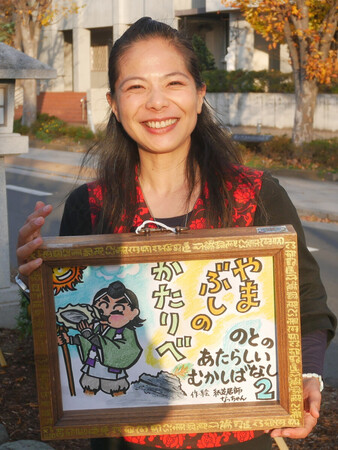 やま
ぶしの
かたりべ
のとの
あたらしい
むかしばなし2
作・絵 紙芝居師
なっちゃん